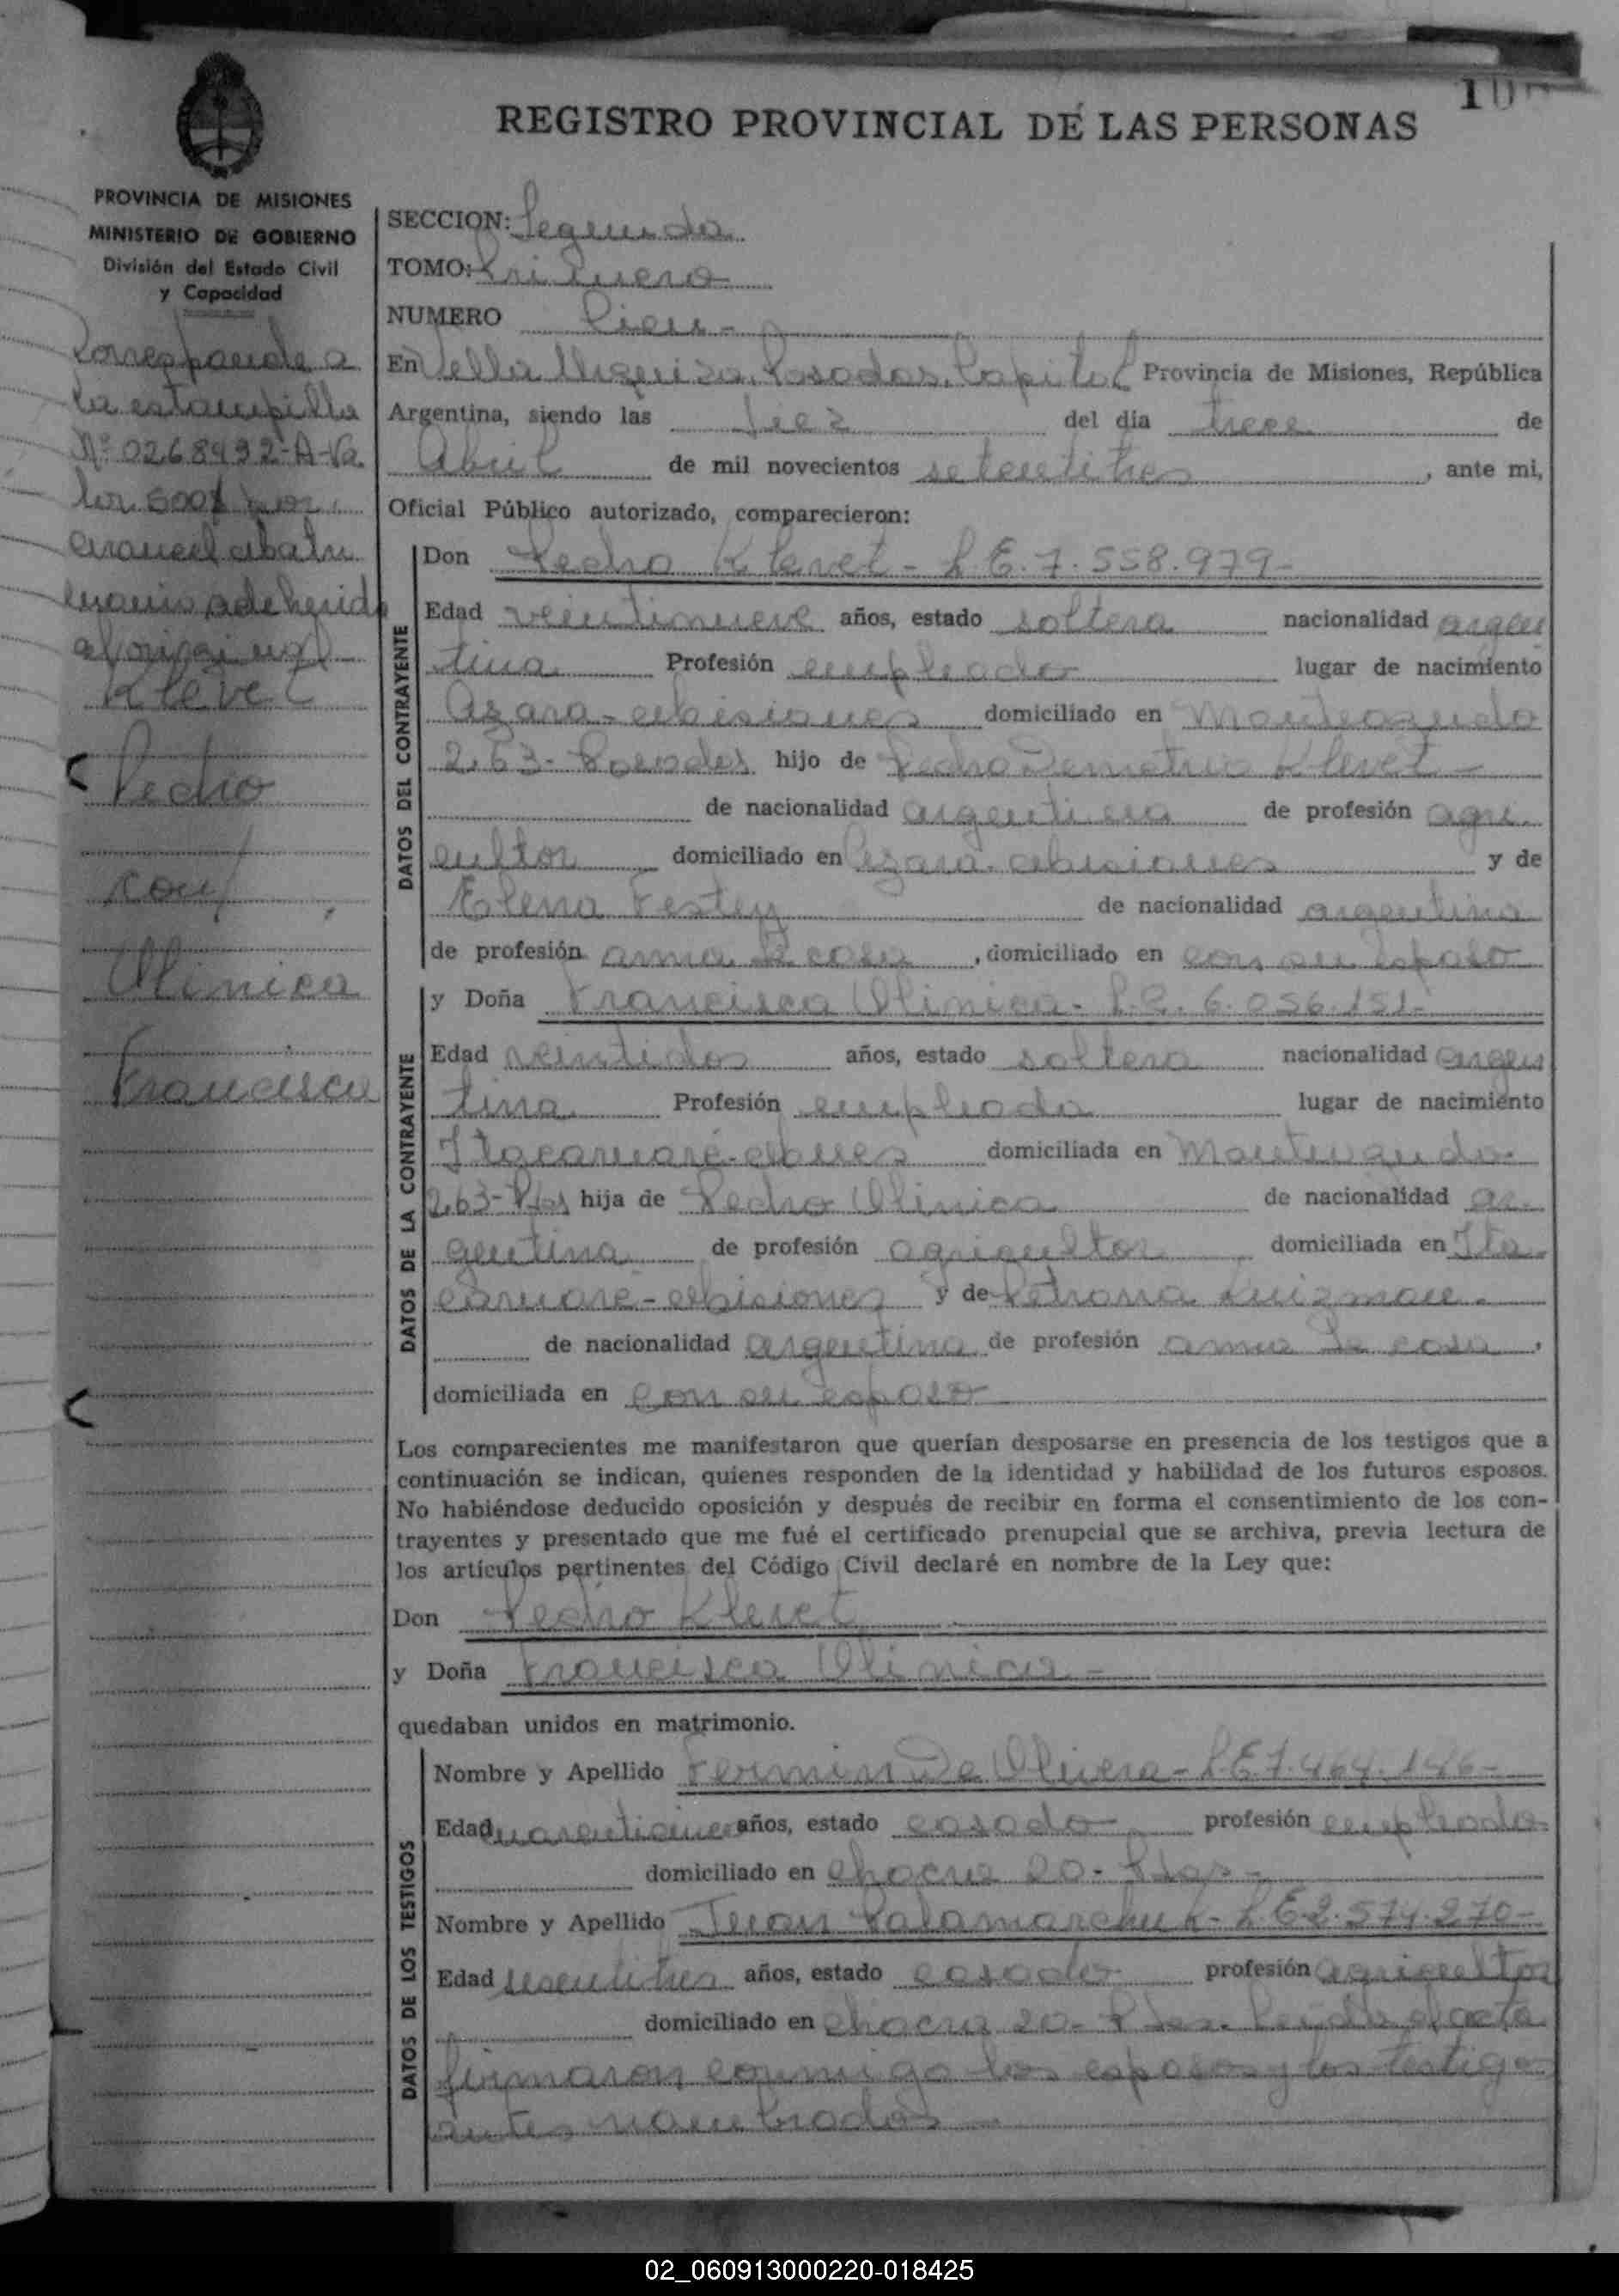 10
REGISTRO PROVINCIAL DE LAS PERSONAS
PROVINCIA DE MISIONES
MINISTERIO DE GOBIERNO
División del Estado Civil
y Capacidad
Corresponde a
la estampilla
Nº 0268492-A-Va
lor 500$ por
arancel matri
monio adherida
al original
Klevet
Pedro
con/
Olinica
Francisca
SECCION: Segunda
TOMO: Primero
NUMERO Cien -
En Villa Urquiza, Posadas, Capital Provincia de Misiones, República
Argentina, siendo las diez del día trece de
Abril de mil novecientos setentitres, ante mi,
Oficial Público autorizado, comparecieron:
DATOS DEL CONTRAYENTE
Don Pedro Klevet - L.E. 7.558.979-
Edad veintinueve años, estado soltero nacionalidad argen
tina Profesión empleado lugar de nacimiento
Azara - Misiones domiciliado en Monteagudo
263 - Posadas hijo de Pedro Demetrio Klevet -
de nacionalidad argentina de profesión agri
cultor domiciliado en Azara - Misiones y de
Elena Festey de nacionalidad argentina
de profesión ama de casa, domiciliado en con su esposo
DATOS DE LA CONTRAYENTE
y Doña Francisca Olinica - L.C. 6.056.151-
Edad veintidos años, estado soltera nacionalidad argen
tina Profesión empleada lugar de nacimiento
Itacaruaré - Mnes domiciliada en Monteagudo
263 - Pdas hija de Pedro Olinica de nacionalidad ar-
gentina de profesión agricultor domiciliada en Ita-
caruaré - Misiones y de Petrona
de nacionalidad argentina de profesión ama de casa,
domiciliada en con su esposo
Los comparecientes me manifestaron que querían desposarse en presencia de los testigos que a
continuación se indican, quienes responden de la identidad y habilidad de los futuros esposos.
No habiéndose deducido oposición y después de recibir en forma el consentimiento de los con-
trayentes y presentado que me fué el certificado prenupcial que se archiva, previa lectura de
los artículos pertinentes del Código Civil declaré en nombre de la Ley que:
Don Pedro Klevet
y Doña Francisca Olinica -
quedaban unidos en matrimonio.
DATOS DE LOS TESTIGOS
Nombre y Apellido Fermin De Olivera - L.E. 7.464.146-
Edad años, estado casado profesión empleado
domiciliado en chacra 20 - Pdas -
Nombre y Apellido Juan Palamarchuk - L.E. 2.574.270-
Edad sesentitres años, estado casado profesión agricultor
domiciliado en chacra 20 - Pdas. Leida el acta
firmaron conmigo los esposos y los testigos
antes nombrados -
02_060913000220-018425